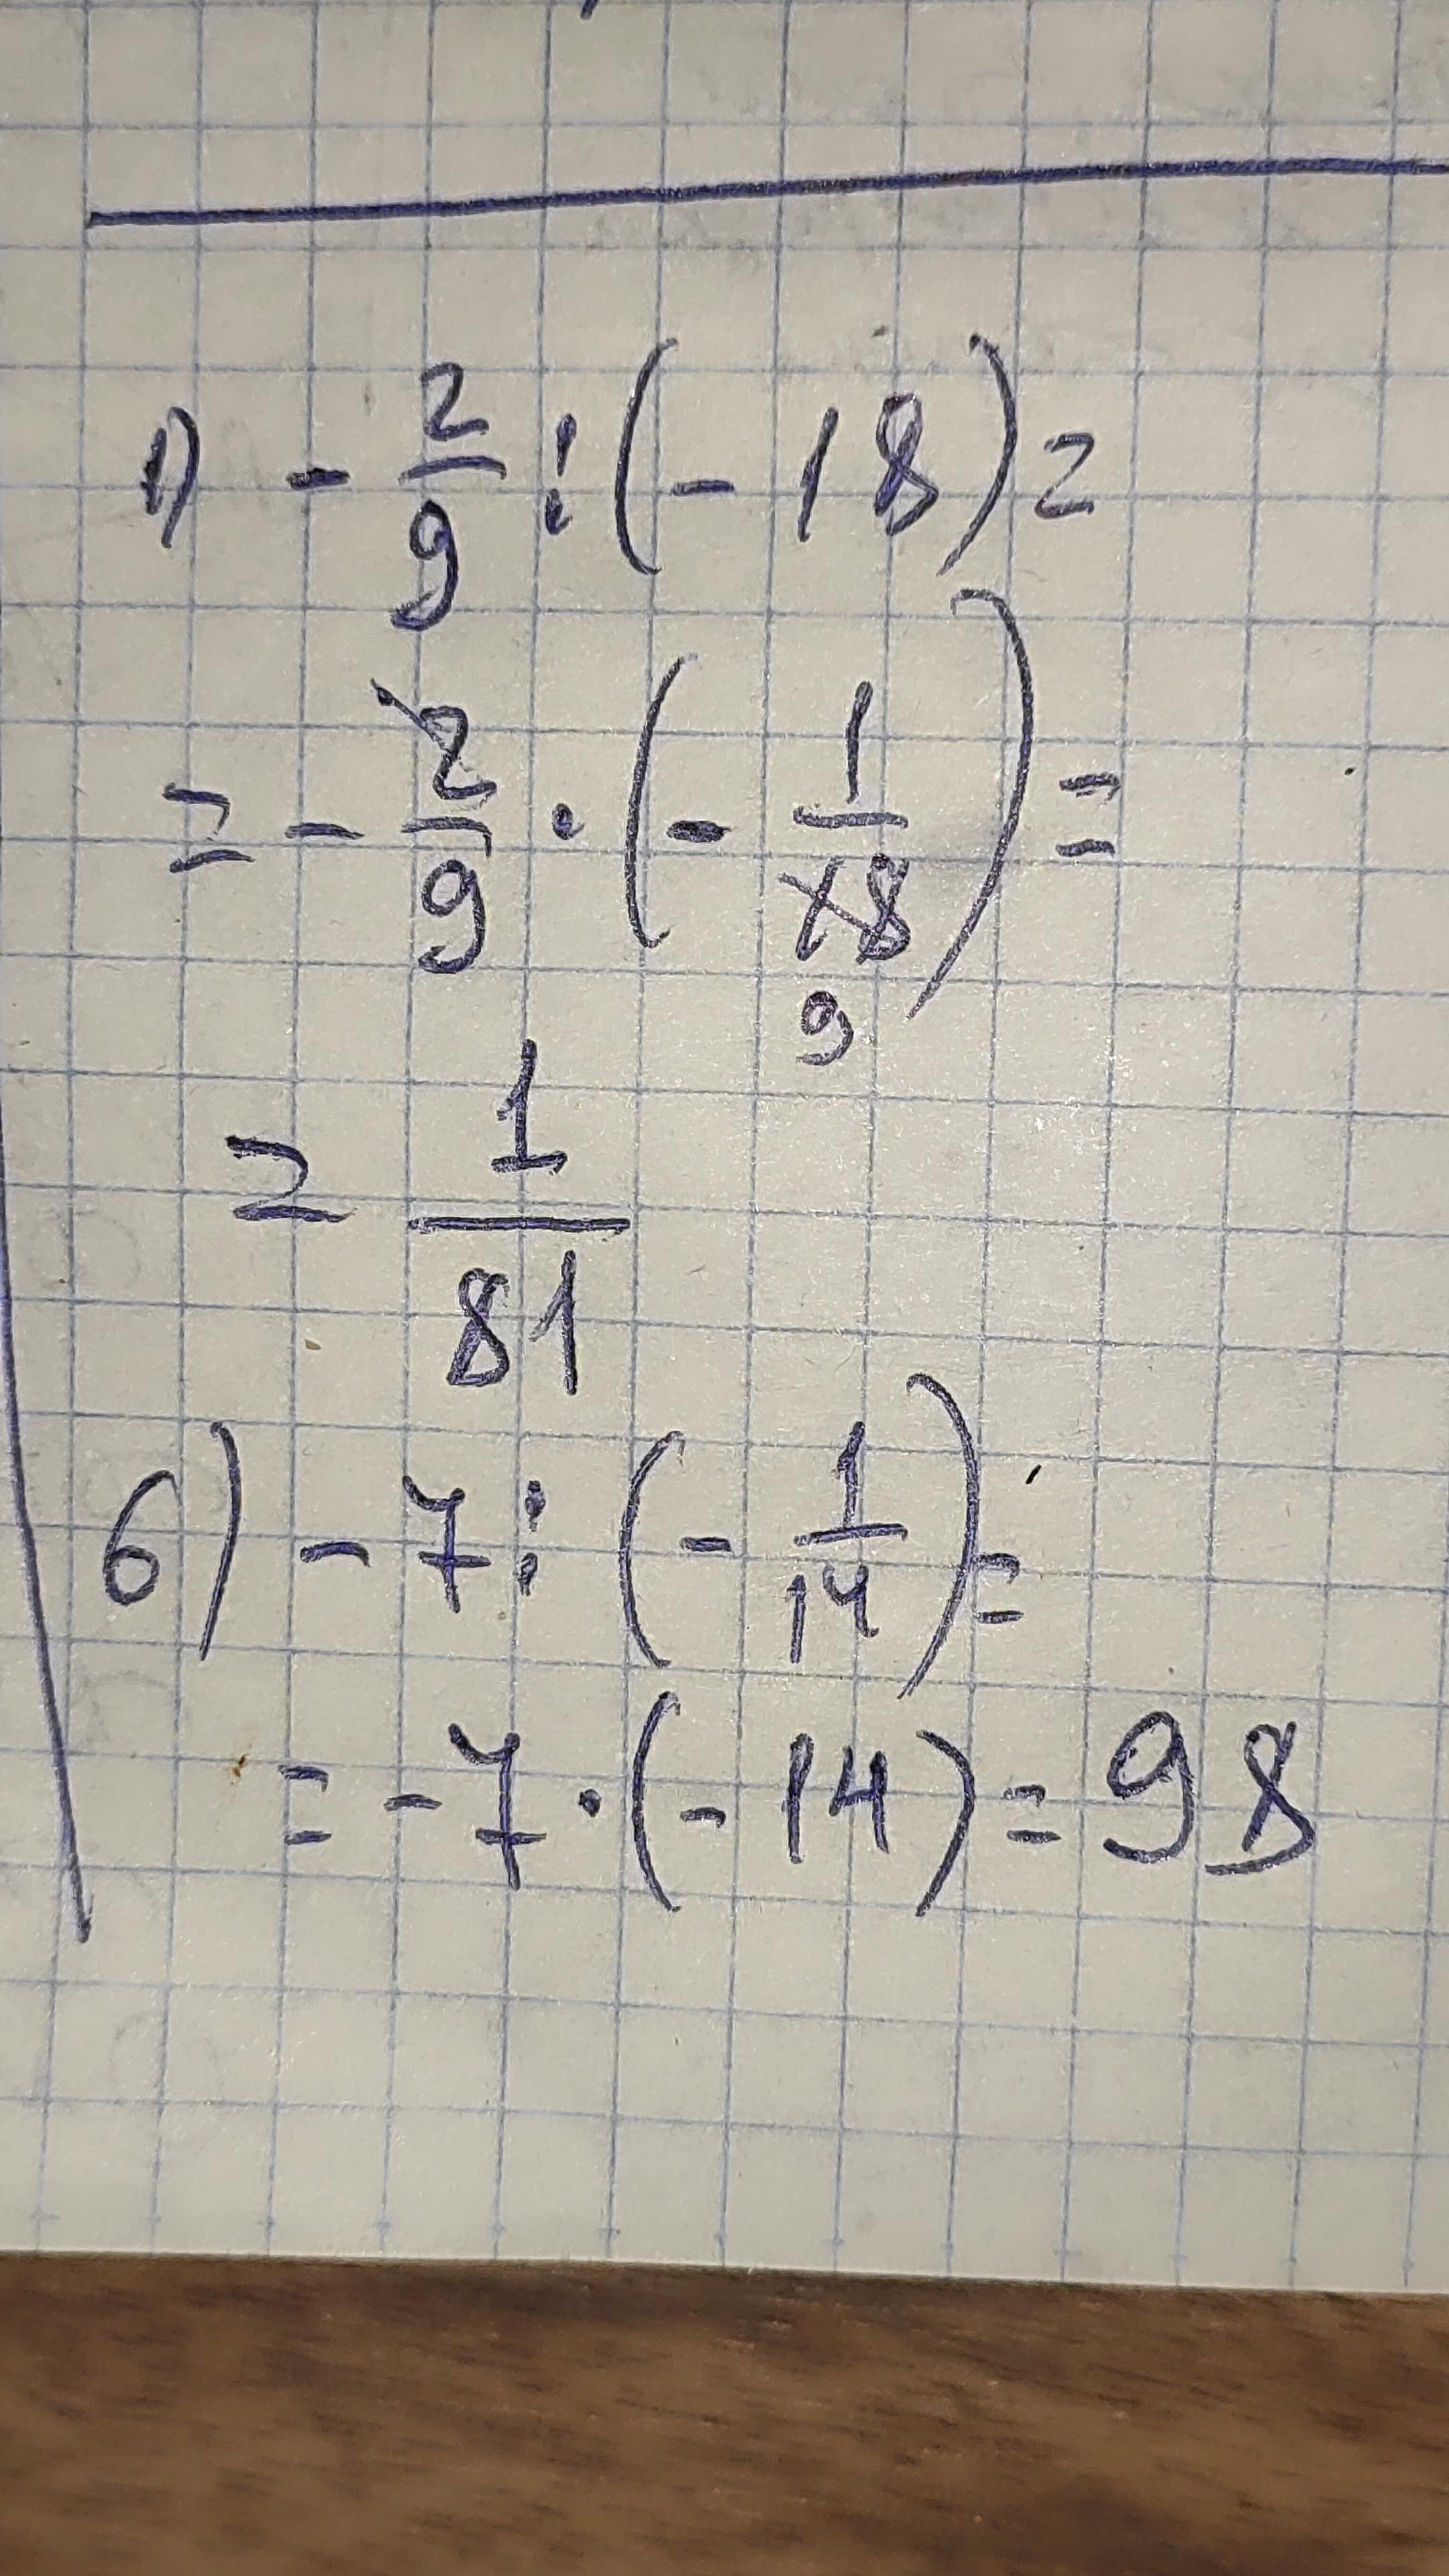 1) - 2/9 : (- 18) =
= - 2/9 · (- 1/18) =
9
= 1/81
6) - 7 : (- 1/14) =
= - 7 · (- 14) = 98